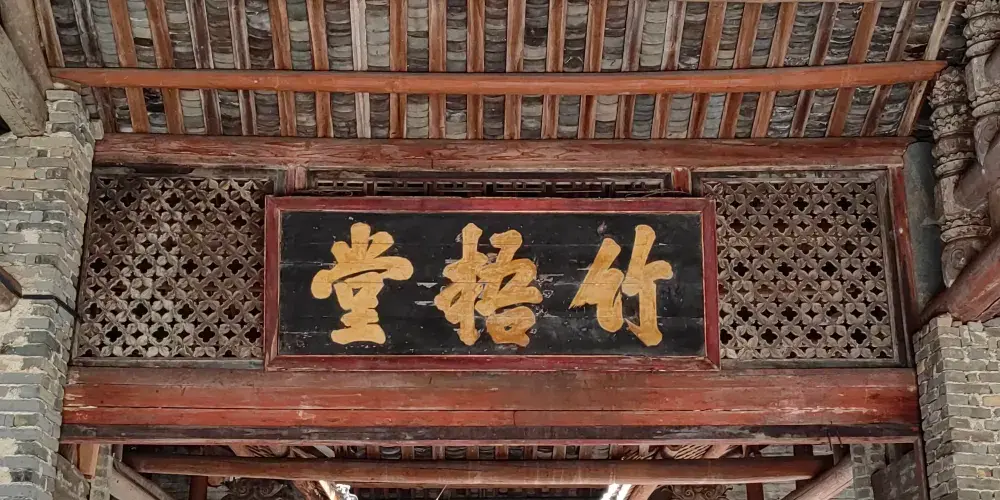 竹梧堂